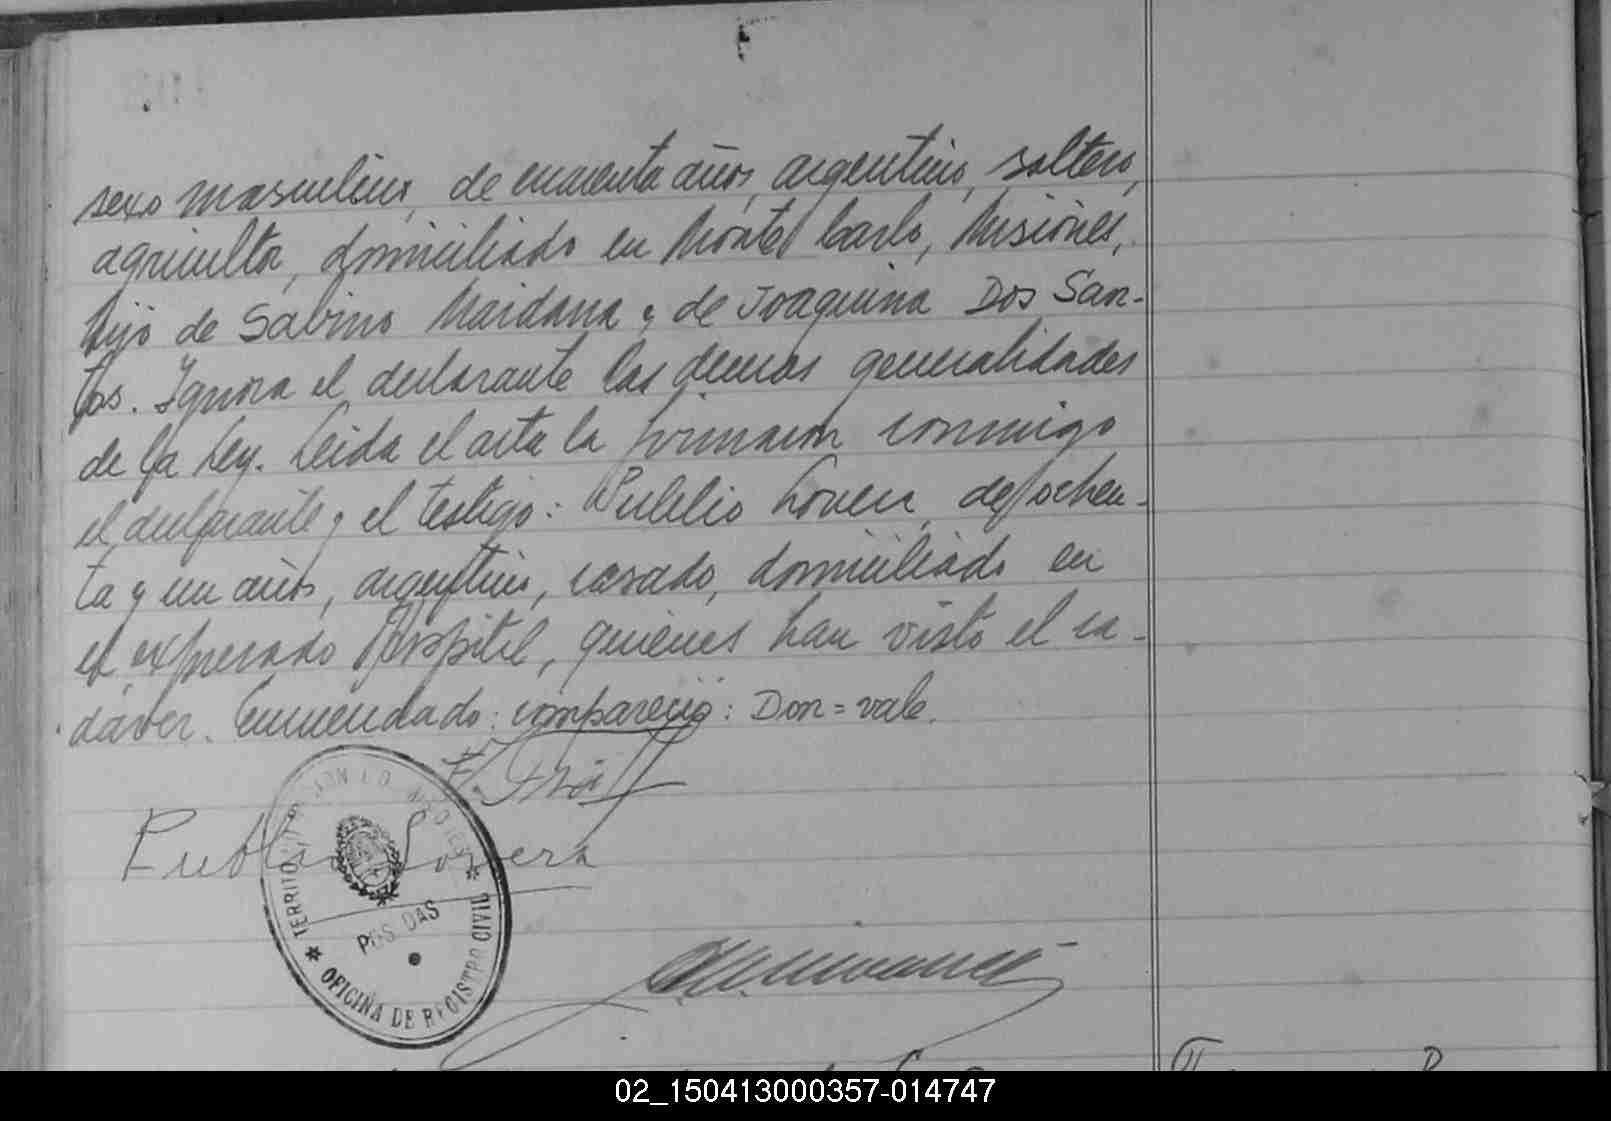 sexo masculino, de cuarenta años, argentino, soltero,
agricultor, domiciliado en Monte Carlo, Misiones,
hijo de Sabino Maidana y de Joaquina Dos San-
tos. Ignora el declarante las demas generalidades
de la Ley. Leida el acta la firmaron conmigo
el declarante y el testigo: Publio Lovera, de ochen-
ta y un años, argentino, casado, domiciliado en
el expresado Hospital, quienes han visto el ca-
dáver. Enmendado: compareció: Don=vale.
Publio Lovera
TERRITORIO
POSADAS
OFICINA DE REGISTRO CIVIL
02_150413000357-014747